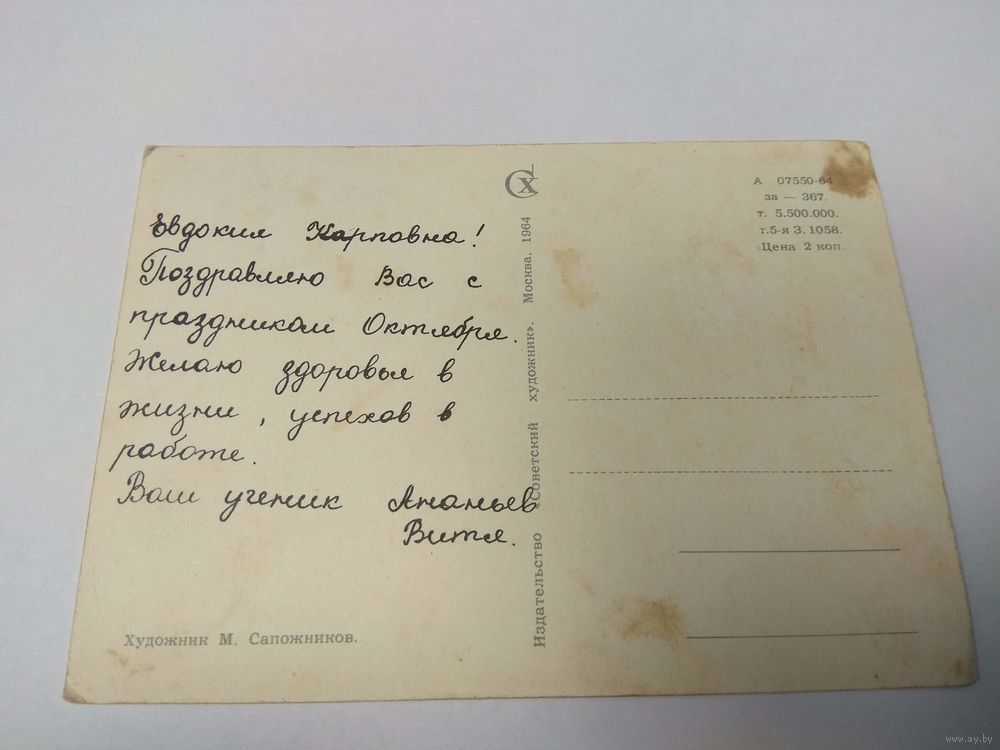 Евдокия Карповна!
Поздравляю Вас с
праздником Октября.
Желаю здоровья в
жизни, успехов в
работе.
Ваш ученик Ананьев
Витя.
Художник М. Сапожников.
Издательство «Советский художник». Москва. 1964
СХ
А 07550-64
за — 367.
т. 5.500.000.
т.5-я З. 1058.
Цена 2 коп.
www.ay.by